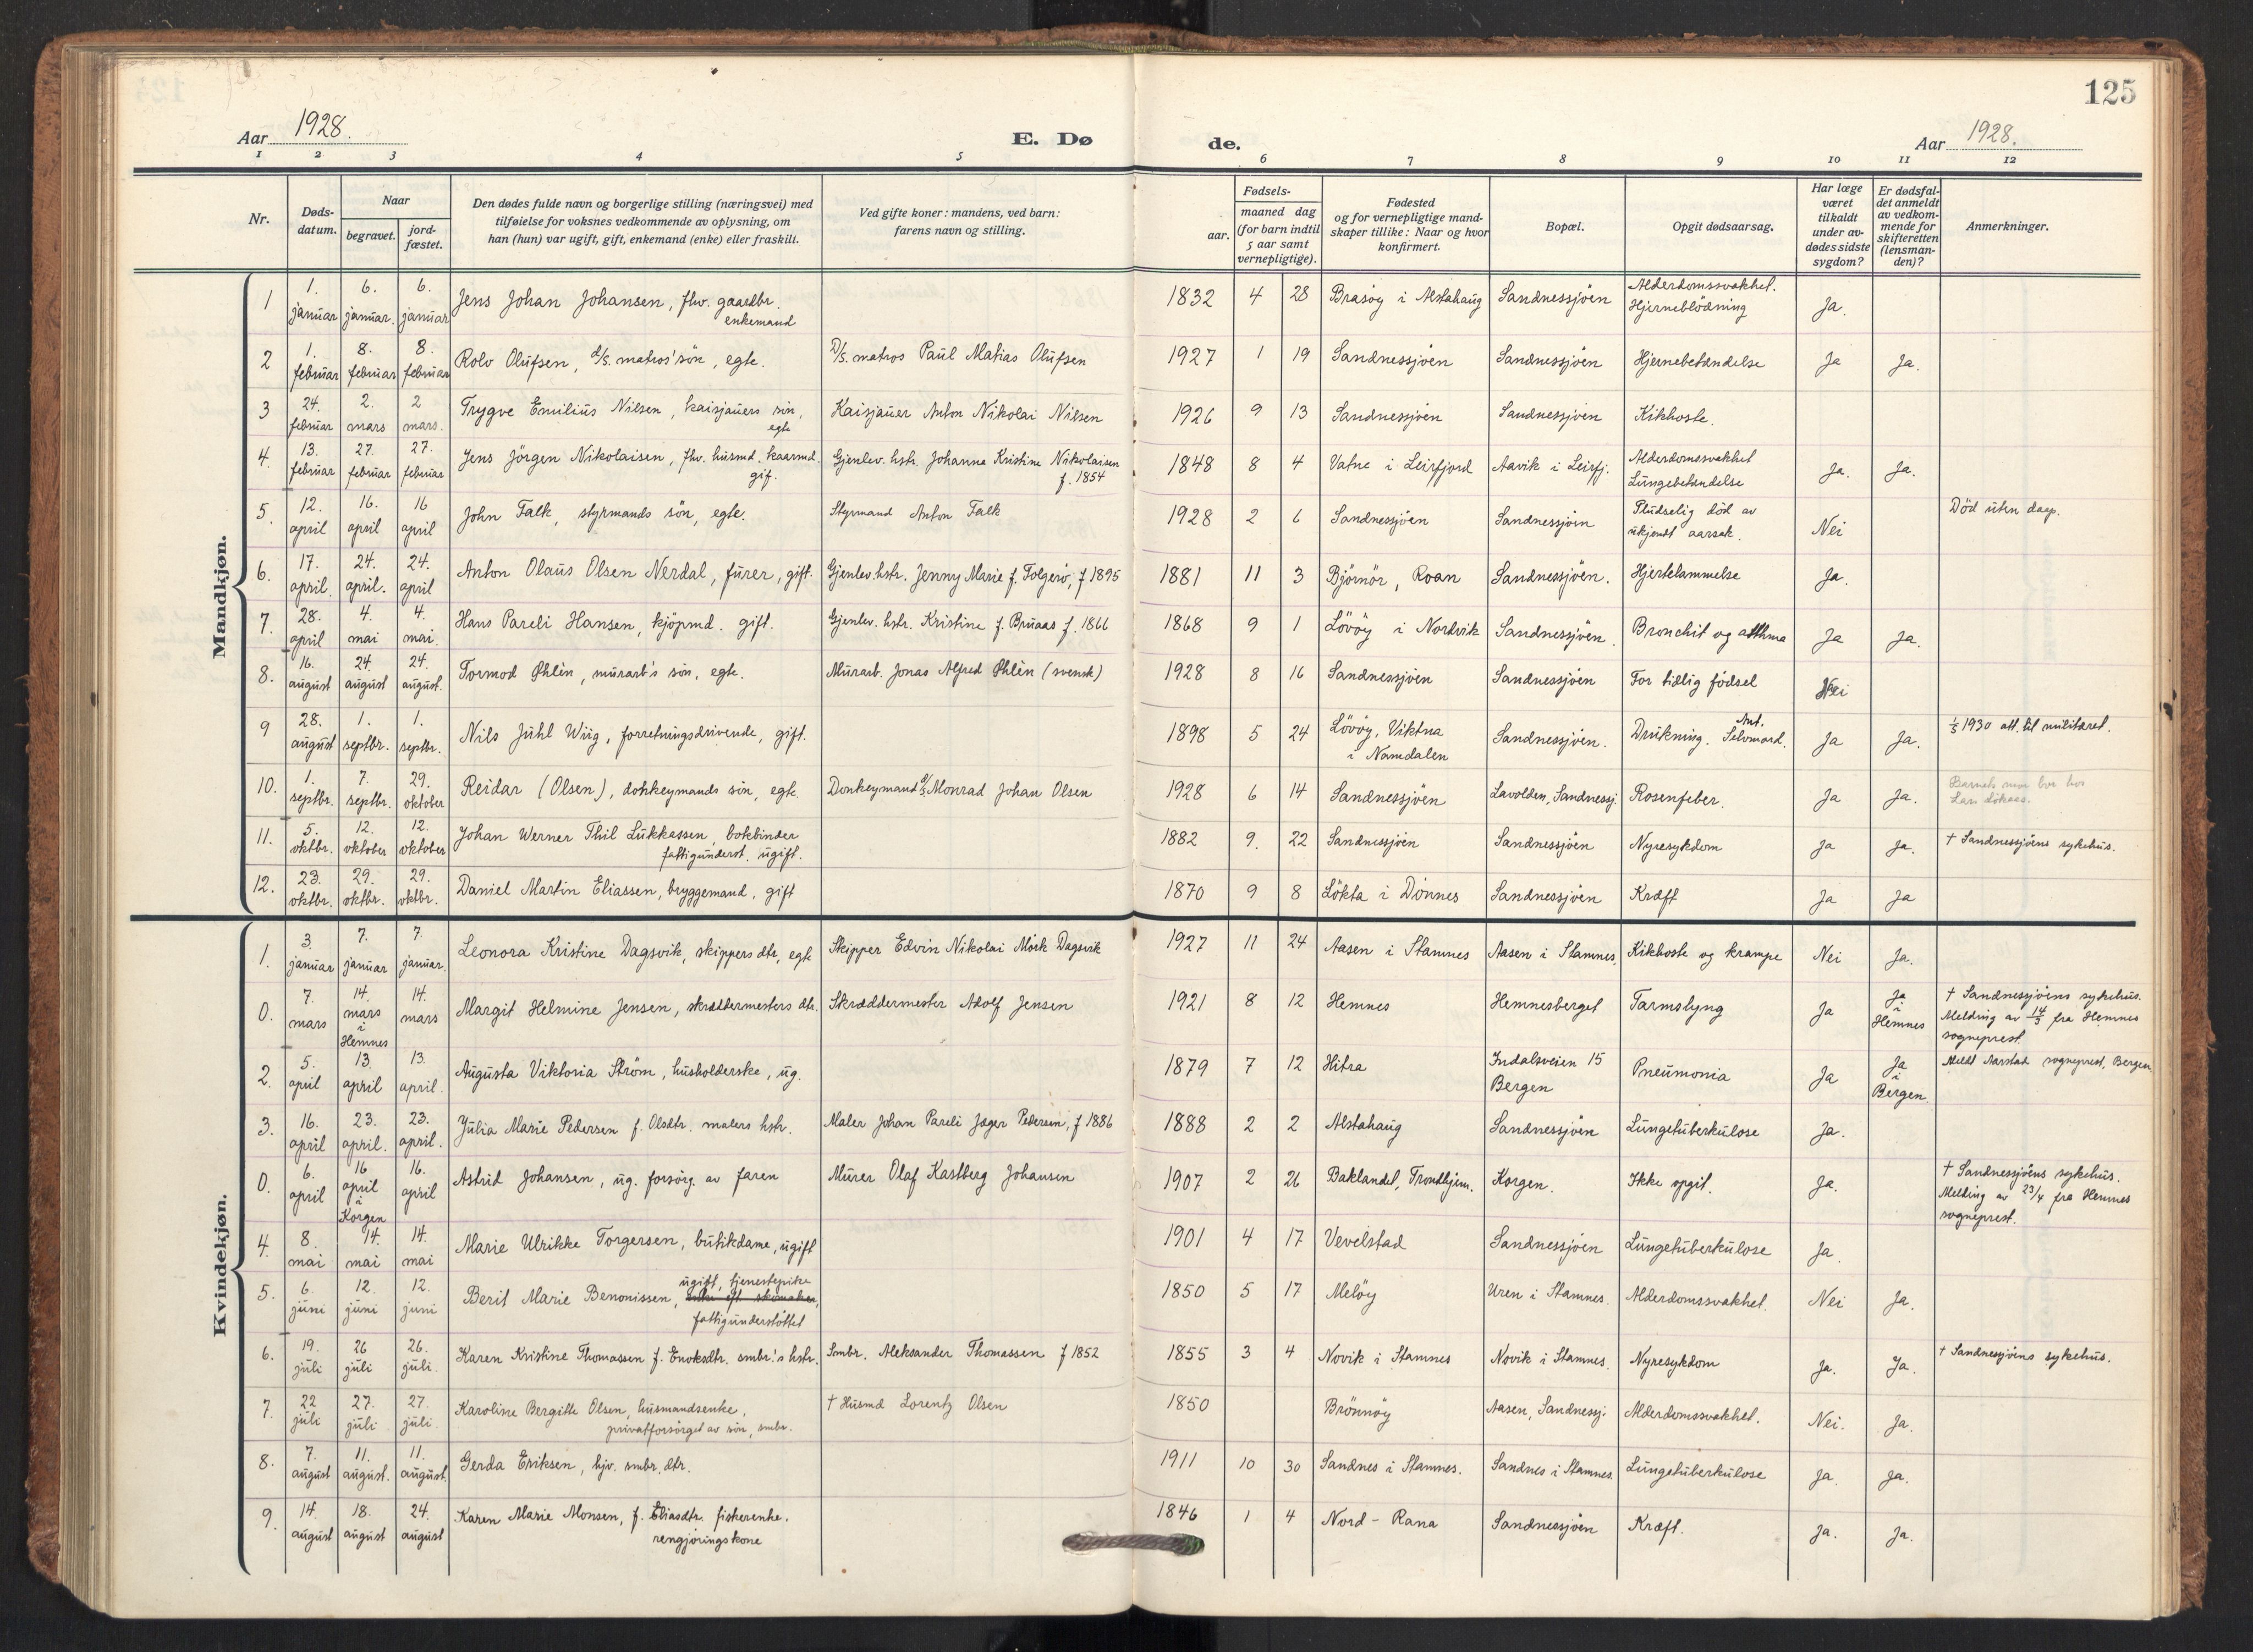 125
Aar 1928.
E. Dø
de.
Aar 1928.
1 2 3 4 5 6 7 8 9 10 11 12
Nr.
Døds-
datum.
Naar
begravet.
jord-
fæstet.
Den dødes fulde navn og borgerlige stilling (næringsvei) med
tilføielse for voksnes vedkommende av oplysning, om
han (hun) var ugift, gift, enkemand (enke) eller fraskilt.
Ved gifte koner: mandens, ved barn:
farens navn og stilling.
Fødsels-
aar.
maaned dag
(for barn indtil
5 aar samt
vernepligtige).
Fødested
og for vernepligtige mand-
skaper tillike: Naar og hvor
konfirmert.
Bopæl.
Opgit dødsaarsag.
Har læge
været
tilkaldt
under av-
dødes sidste
sygdom?
Er dødsfal-
det anmeldt
av vedkom-
mende for
skifteretten
(lensman-
den)?
Anmerkninger.
Mandkjøn.
1 1. januar 6. januar. 6. januar Jens Johan Johansen, fhv. gaardbr. 1832 4 28 Brasøy i Alstahaug Sandnessjöen Alderdomssvakhet. Ja.
enkemand Hjerneblödning
2 1. februar 8. februar 8. februar Rolv Olufsen, d/s. matros' sön, egte. D/s. matros Paul Matias Olufsen 1927 1 19 Sandnessjöen Sandnessjöen Hjernebetændelse Ja Ja.
3 24. februar 2. mars 2 mars. Trygve Emilius Nilsen, kaisjauers sön, Kaisjauer Anton Nikolai Nilsen 1926 9 13 Sandnessjöen Sandnessjöen Kikhoste.
egte
4. 13. februar 27. februar 27. februar Jens Jörgen Nikolaisen, fhv. husmd. kaarmd. Gjenlev. hstr. Johanna Kristine Nikolaisen 1848 8 4 Vatne i Leirfjord Aavik i Leirfj. Alderdomssvakhet Ja. Ja.
gif. f. 1854 Lungebetændelse
5. 12. april 16. april 16 april John Falk, styrmands sön, egte. Styrmand Anton Falk 1928 2 6 Sandnessjöen Sandnessjöen Pludselig död av Nei Död uten daap.
ukjendt aarsak.
6. 17. april. 24. april. 24. april Anton Olaus Olsen Nerdal, furer, gift. Gjenlev. hstr. Jenny Marie f. Folgerö, f 1895 1881 11 3 Björnör, Roan Sandnessjöen. Hjertelammelse Ja.
7. 28. april 4. mai 4. mai. Hans Pareli Hansen, kjöpmd. gift. Gjenlev. hstr. Kristine f. Bruaas f. 1866 1868 9 1 Lövöy i Nordvik Sandnessjöen. Bronchit og asthma Ja Ja.
8. 16. august 24. august 24. august. Tormod Øhlèn, murarb's sön, egte. Murarb. Jonas Alfred Øhlèn (svensk) 1928 8 16 Sandnessjöen Sandnessjöen For tidlig födsel Nei
9 28. august 1. septbr. 1. septbr. Nils Juhl Wiig, forretningsdrivende, gift. 1898 5 24 Lövöy, Viktna Sandnessjöen. Drukning. Ant. Selvmord. Ja Ja. 1/5 1930 att. til militæret.
i Namdalen
10. 1. septbr. 7. septbr. 29. oktober Reidar (Olsen), donkeymands sön, egte. Donkeymand d/s Monrad Johan Olsen 1928 6 14 Sandnessjöen Lavolden, Sandnessj. Rosenfeber. Ja Ja. Barnets mor bor hos
Lars
11. 5. oktbr. 12. oktober 12. oktober Johan Werner Thil Lukkassen, bokbinder 1882 9. 22 Sandnessjöen Sandnessjöen Nyresykdom Ja Ja. † Sandnessjöens sykehus.
fattigunderst. ugift.
12. 23. oktbr. 29. oktbr. 29. oktbr. Daniel Martin Eliassen, bryggemand, gift 1870 9 8 Lökta i Dönnes Sandnessjöen Kræft Ja Ja
Kvindekjøn.
1. 3. januar 7. januar 7. januar. Leonora Kristine Dagsvik, skippers dtr, egte Skipper Edvin Nikolai Mörk Dagsvik 1927 11 24 Aasen i Stamnes Aasen i Stamnes. Kikhoste og krampe Nei Ja.
0. 7. mars 14. mars i Hemnes 14. mars Margit Helmine Jensen, skræddermesters dtr. Skræddermester Adolf Jensen 1921 8 12 Hemnes Hemnesberget Tarmslyng Ja Ja i Hemnes † Sandnessjöens sykehus.
Meldring av 14/3 fra Hemnes
sogneprest.
2. 5. april 13. april 13. april. Augusta Viktoria Ström, husholderske, ug. 1879 7 12 Hitra Indalsveien 15 Pneumonia Ja Ja i Bergen. Meldt Aarstad sogneprest, Bergen.
Bergen
3. 16. april 23. april. 23. april. Julia Marie Pedersen f. Olsdtr. malers hstr. Maler Johan Pareli Jæger Pedersen, f 1886 1888 2 2 Alstahaug Sandnessjöen Lungetuberkulose Ja.
0. 6. april 16 april i Korgen 16. april Astrid Johansen, ug. forsörg. av faren Murer Olaf Kastberg Johansen 1907 2 26 Baklandet, Trondhjem. Korgen. Ikke opgit. Ja. † Sandnessjöens sykehus.
Meldring av 23/4 fra Hemnes
sogneprest.
4. 8. mai 14. mai 14. mai Marie Ulrikke Torgersen, butikdame, ugift 1901 4 17 Vevelstad Sandnessjöen Lungetuberkulose Ja.
5. 6. juni 12. juni 12. juni Berit Marie Benonissen, ugift, tjenestepike 1850 5 17 Melöy Uren i Stamnes. Alderdomssvakhet. Nei Ja.
fattigunderstöttet
6. 19. juli 26 juli 26. juli. Karen Kristine Thomassen f. Enoksdtr. smbr.'s hstr. Smbr. Aleksander Thomassen f 1852 1855 3 4 Novik i Stamnes Novik i Stamnes. Nyresykdom Ja. Ja. † Sandnessjöens sykehus.
7. 22 juli 27. juli 27. juli. Karoline Bergitte Olsen, husmandsenke, † Husmd Lorentz Olsen 1850 Brönnöy Aasen, Sandnessj. Alderdomssvakhet. Nei. Ja.
privatforsörget av sön, smbr.
8. 7. august 11. august. 11. august. Gerda Eriksen, hjv. smbr. dtr. 1911 10 30 Sandnes i Stamnes. Sandnes i Stamnes. Lungetuberkulose Ja. Ja.
9. 14. august 18. august 24. august Karen Marie Monsen, f. Eliasdtr. fiskerenke. 1846 1 4 Nord-Rana Sandnessjöen Kræft. Ja. Ja.
rengjöringskone